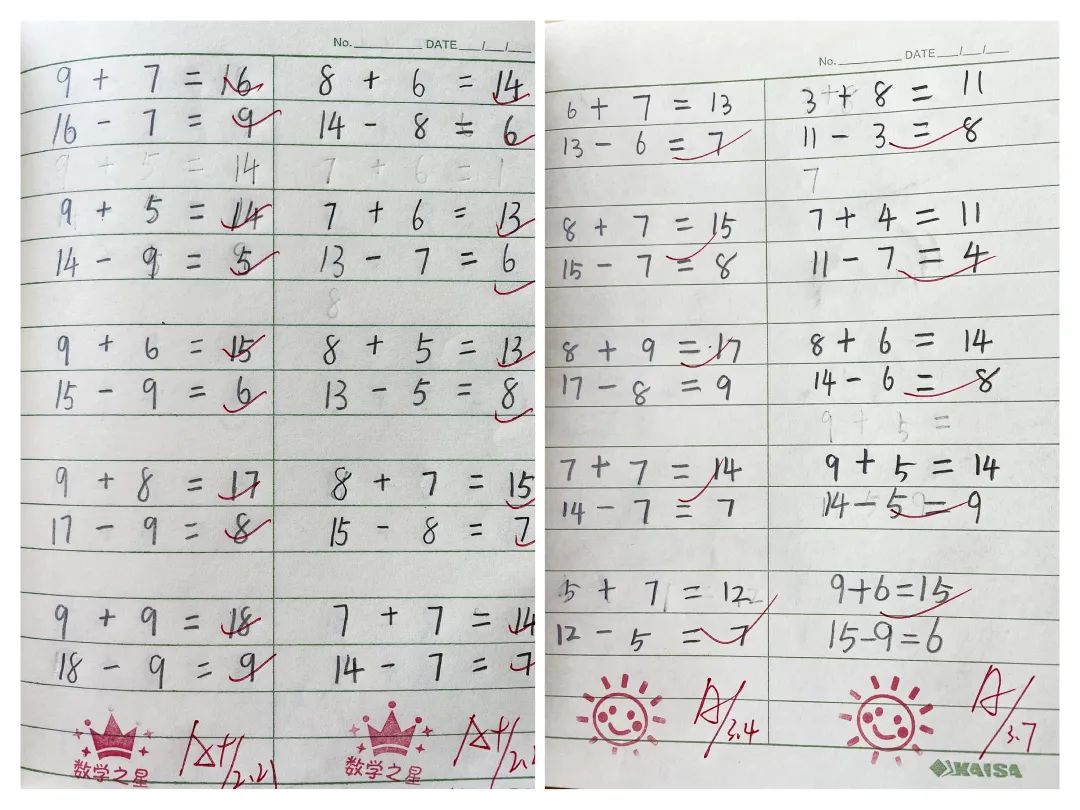 No. DATE / /
9 + 7 = 16
16 - 7 = 9
9 + 5 = 14
9 + 5 = 14
14 - 9 = 5
9 + 6 = 15
15 - 9 = 6
9 + 8 = 17
17 - 9 = 8
9 + 9 = 18
18 - 9 = 9
数学之星
A+/2.21
8 + 6 = 14
14 - 8 = 6
7 + 6 = 1
7 + 6 = 13
13 - 7 = 6
8
8 + 5 = 13
13 - 5 = 8
8 + 7 = 15
15 - 8 = 7
7 + 7 = 14
14 - 7 = 7
数学之星
A+/2.2
No. DATE / /
6 + 7 = 13
13 - 6 = 7
8 + 7 = 15
15 - 7 = 8
8 + 9 = 17
17 - 8 = 9
7 + 7 = 14
14 - 7 = 7
5 + 7 = 12
12 - 5 = 7
A/3.4
3 + 8 = 11
11 - 3 = 8
7
7 + 4 = 11
11 - 7 = 4
8 + 6 = 14
14 - 6 = 8
9 + 5 =
9 + 5 = 14
14 - 5 = 9
9+6=15
15-9=6
A/3.7
KAISA